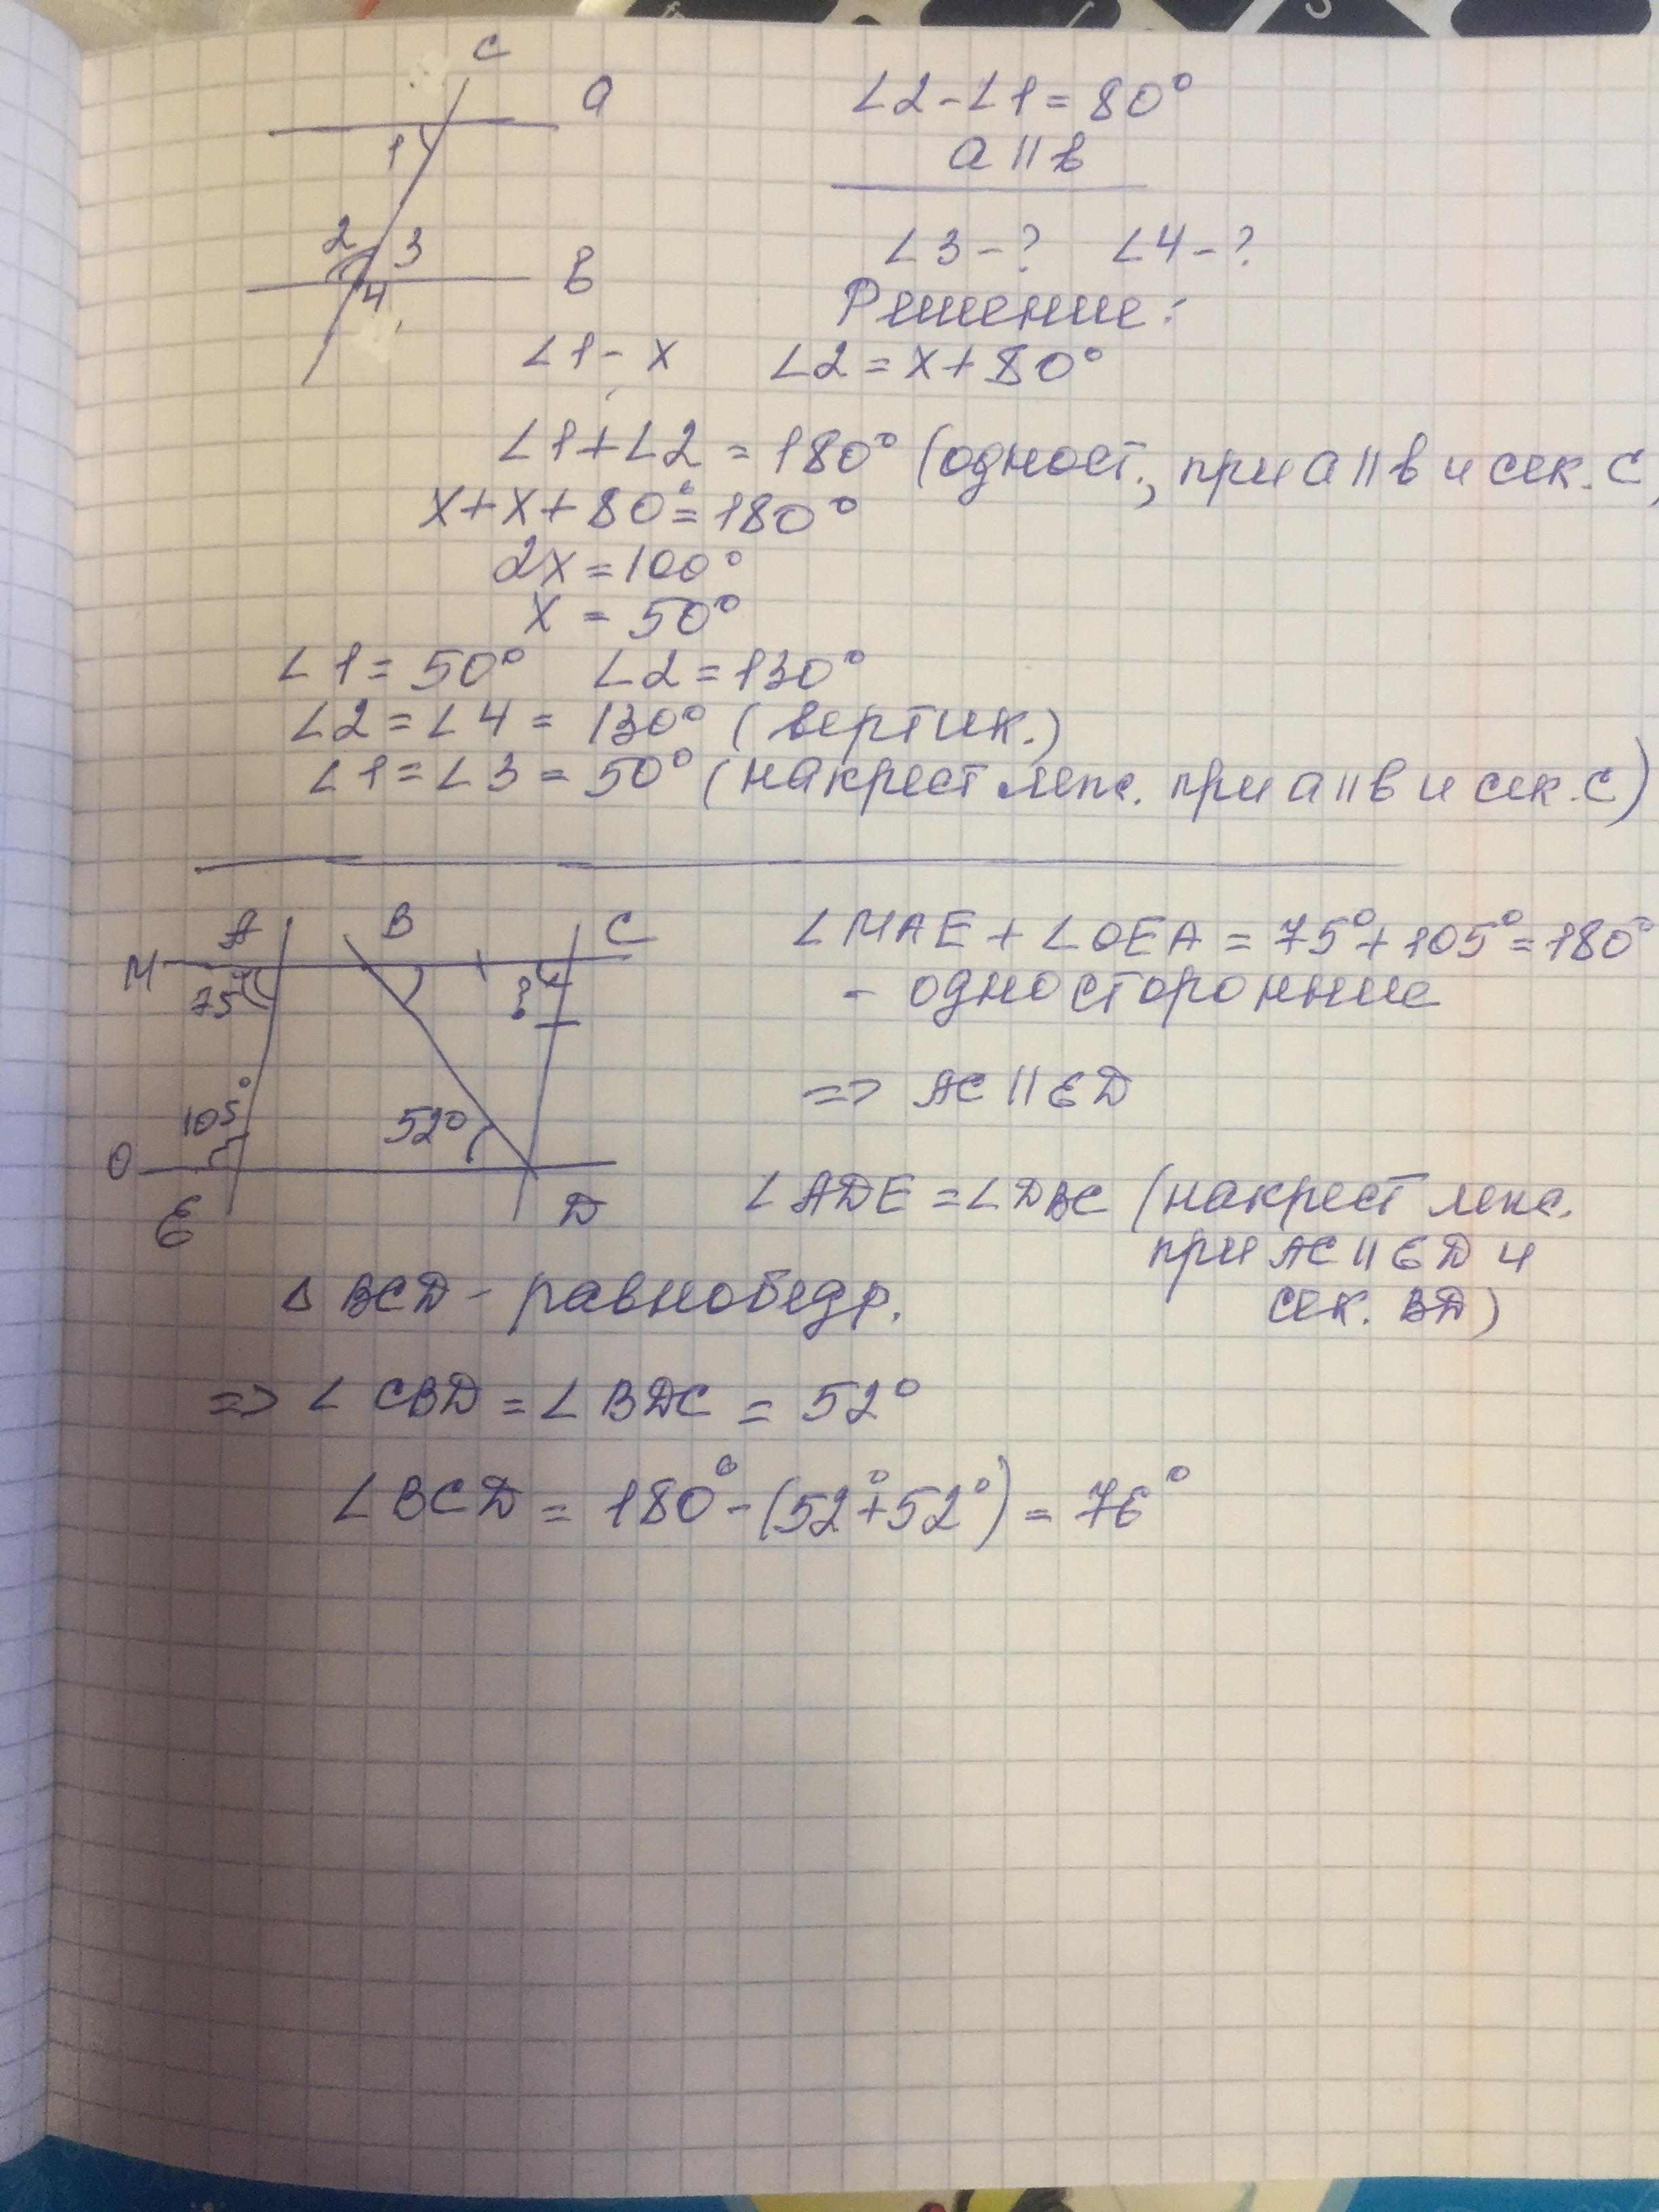 c
a
1
2 3
4
в
∠2-∠1=80°
a || в
∠3-? ∠4-?
Решение:
∠1- x ∠2=x+80°
∠1+∠2=180° (одност., при a || в и сек. c)
x+x+80°=180°
2x=100°
x=50°
∠1=50° ∠2=130°
∠2=∠4=130° (вертик.)
∠1=∠3=50° (накрест леж. при a || в и сек. c)
A B C
M
75°
?
105°
52°
O
E D
∠MAE+∠OEA=75°+105°=180°
- односторонние
=> AC || ED
∠ADE=∠DBC (накрест леж.
при AC || ED и
сек. BD)
△ BCD - равнобедр.
=> ∠CBD=∠BDC=52°
∠BCD=180°-(52°+52°)=76°